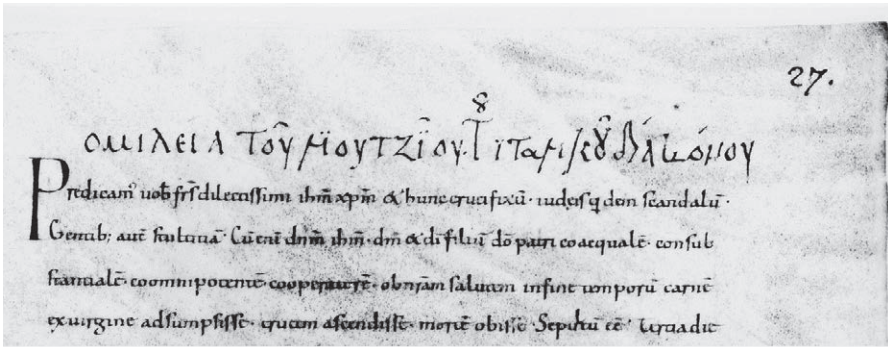 27.
ομιλεία τοῦ
Predicam' uob̄ frs̄ dilectissimi ihm̄ xpm̄ & hunc crucifixū· iudeis qdem scandalū·
Gentib; autē stultitiā· Cū enī dnm̄ ihm̄· dm̄ & dī filiū dō patri coaequalē· consub
stantialē· coomnipotentē· cooperatorē· ob nrām salutem in fine temporū carnē
ex uirgine adsumpsissē· crucem ascendissē· mortē obissē· Sepultū eē· tertia die